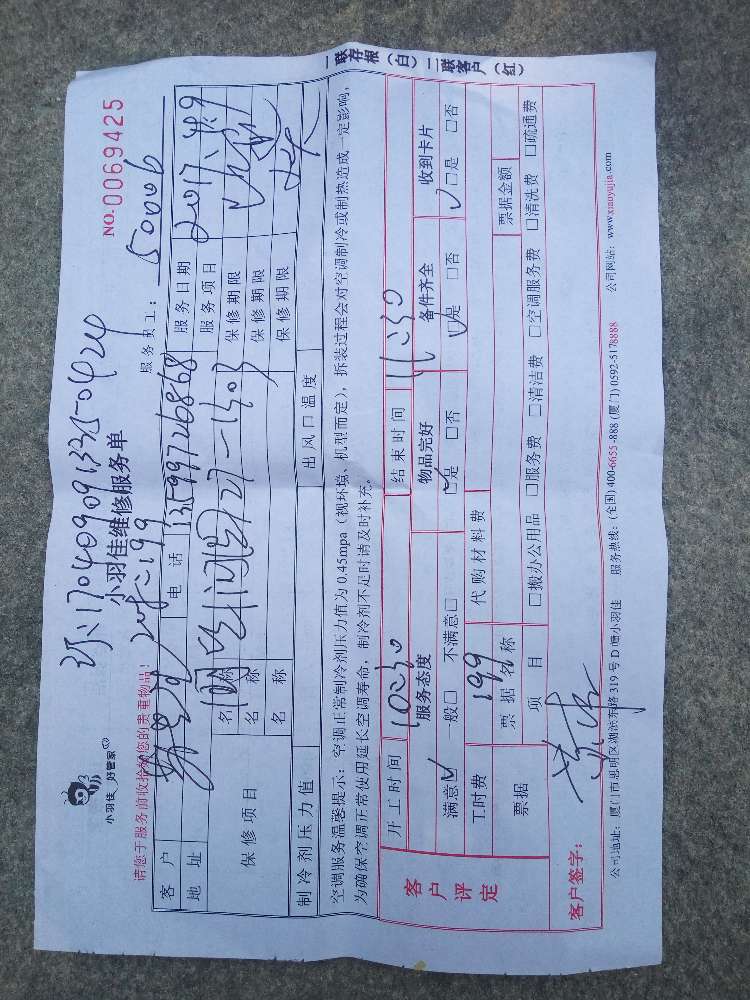 一联存根（白）二联客户（红）
NO.0069425
小羽佳 好管家
小羽佳维修服务单
请您于服务前收拾好您的贵重物品！
服务员工： 50006
客户 电话 13599726868 服务日期 2017.4.9
地址 27-1503 服务项目
保修项目 名称 保修期限
名称 保修期限
名称 保修期限
制冷剂压力值 出风口温度
空调服务温馨提示：空调正常制冷剂压力值为 0.45mpa（视环境、机型而定），拆装过程会对空调制冷或制热造成一定影响，
为确保空调正常使用延长空调寿命，制冷剂不足时请及时补充。
客户评定
开工时间 10:30 结束时间 11:30
服务态度 物品完好 备件齐全 收到卡片
满意☑ 一般□ 不满意□ □是 □否 □是 □否 □是 □否
工时费 199 代购材料费
票据 票据名称 票据金额
项目 □搬办公用品 □服务费 □清洁费 □空调服务费 □清洗费 □疏通费
客户签字：
公司地址：厦门市思明区湖滨东路 319 号 D 幢小羽佳 服务热线：（全国）400-6655-888（厦门）0592-5178888 公司网站：www.xiaoyujia.com